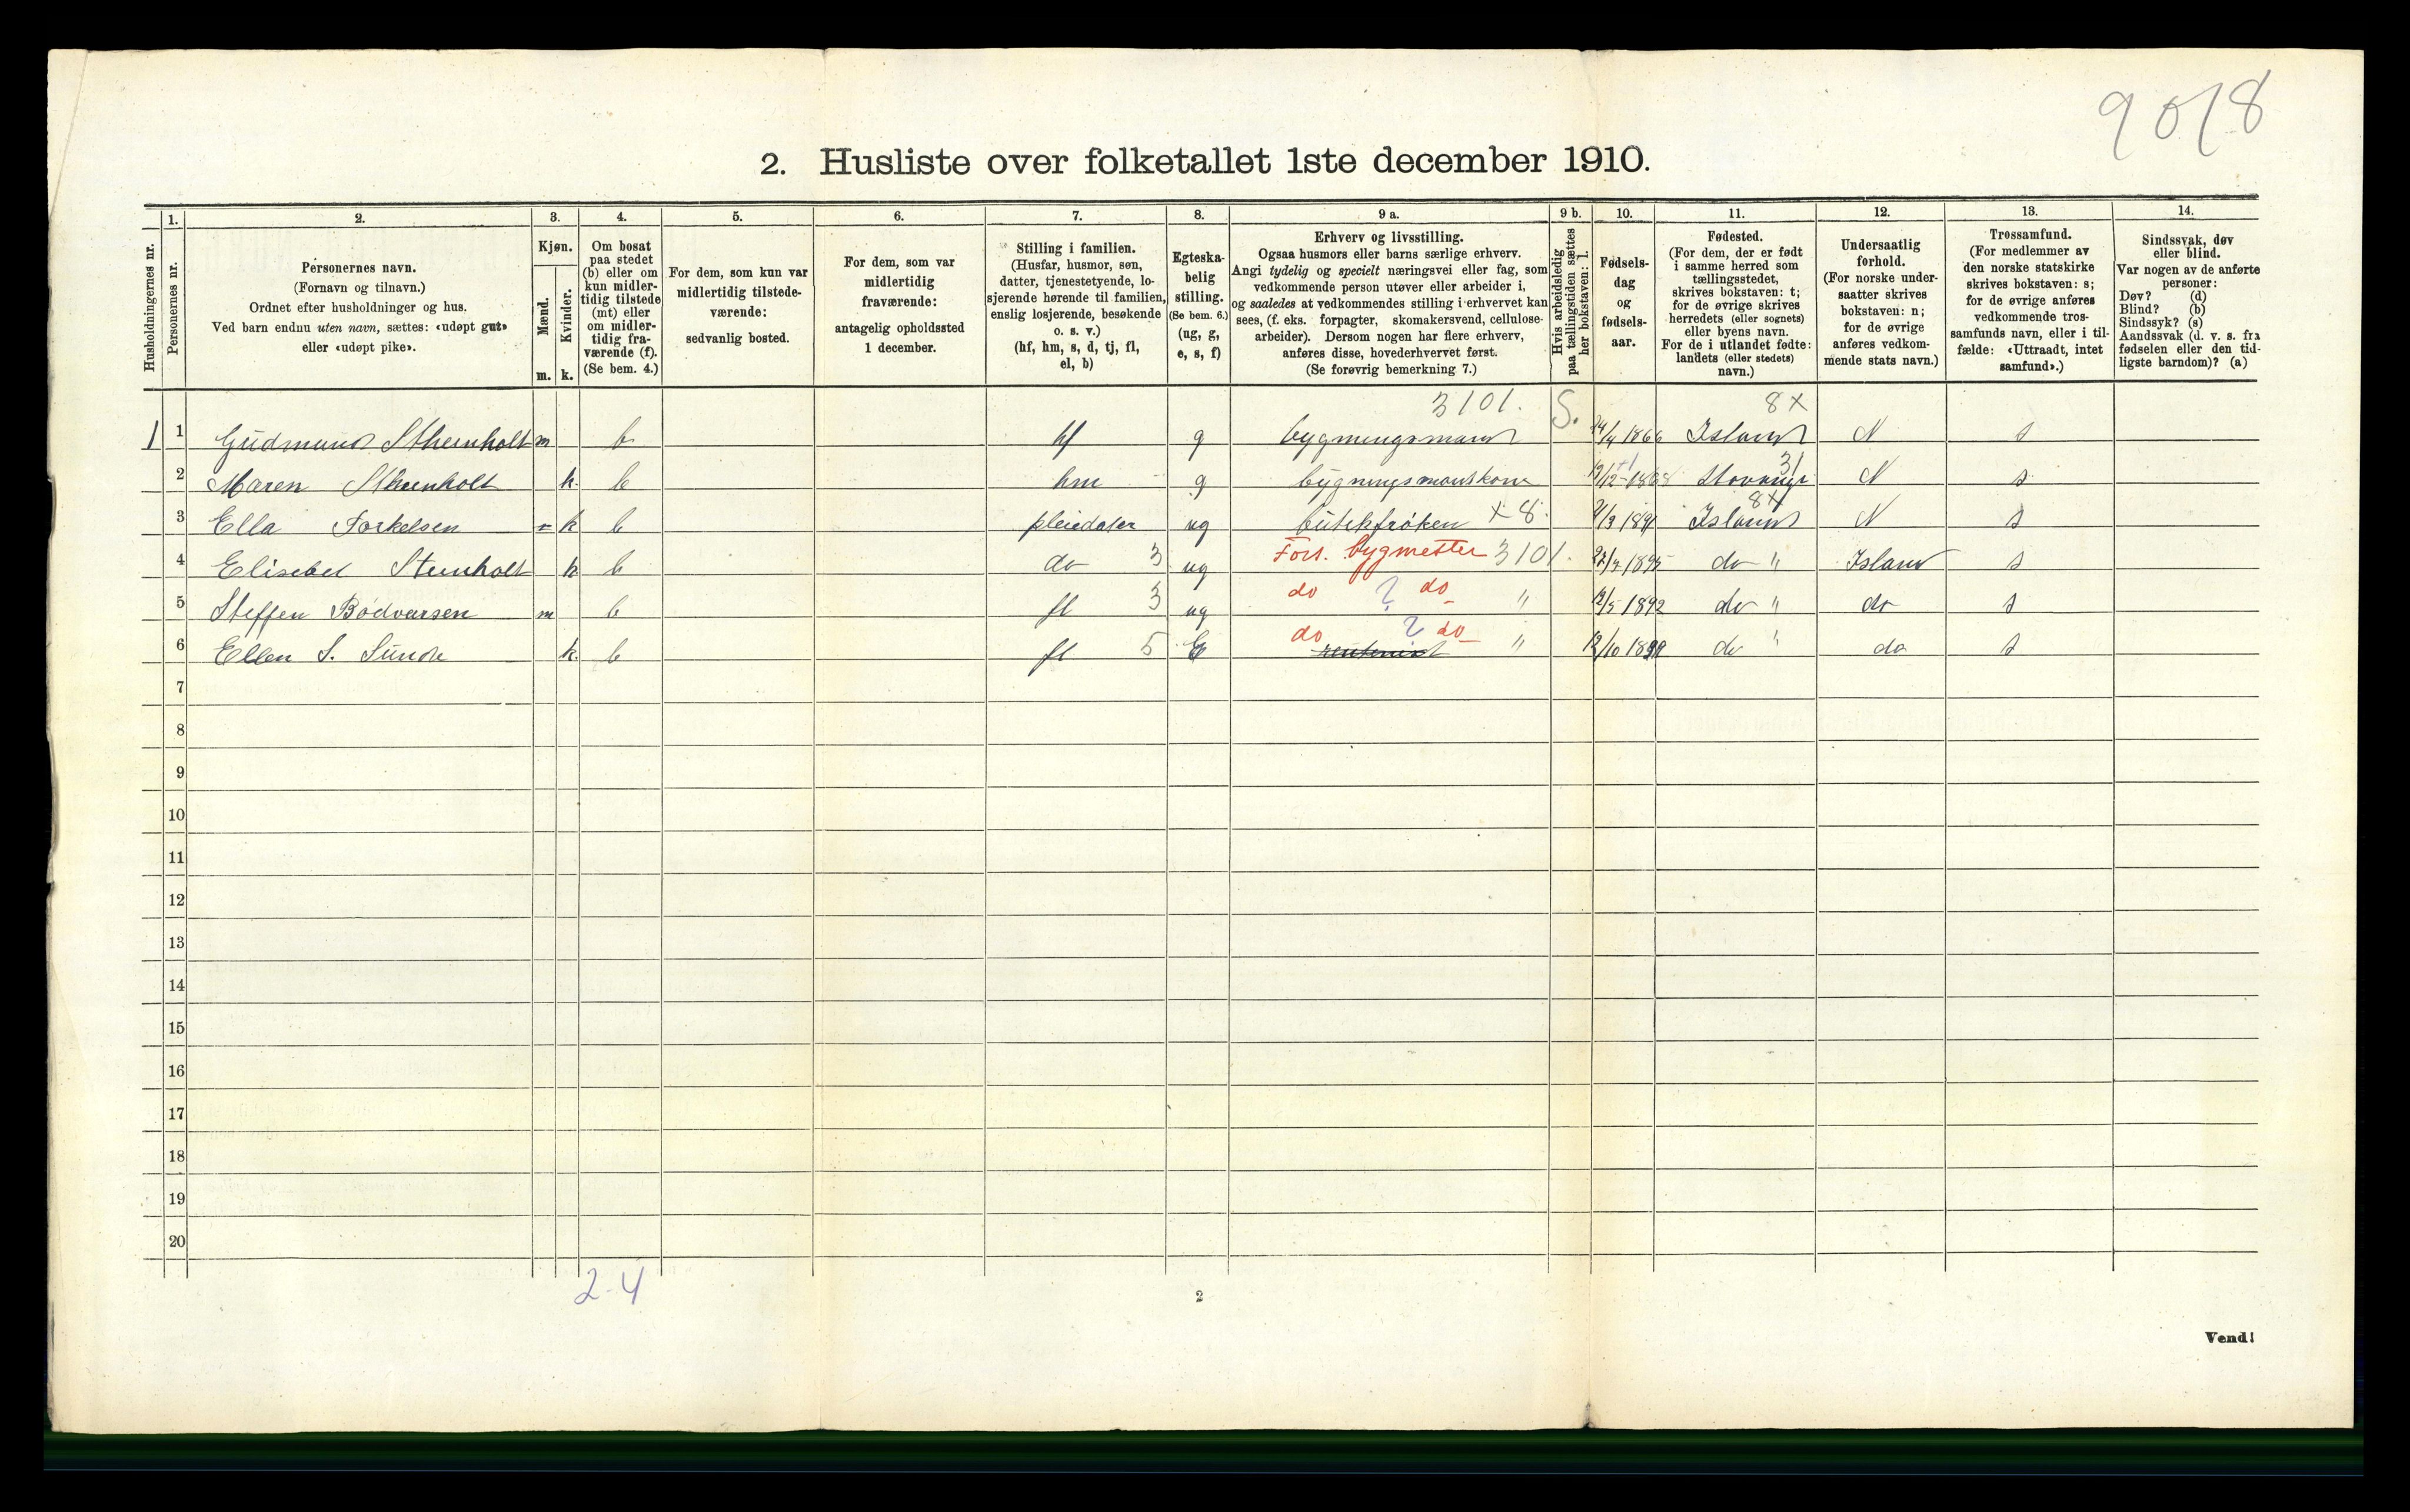 9018
2. Husliste over folketallet 1ste december 1910.
Husholdningernes nr.
1. Personernes nr.
2. Personernes navn.
(Fornavn og tilnavn.)
Ordnet efter husholdninger og hus.
Ved barn endnu uten navn, sættes: «udøpt gut»
eller «udøpt pike».
3. Kjøn.
Mænd. m.
Kvinder. k.
4. Om bosat
paa stedet
(b) eller om
kun midler-
tidig tilstede
(mt) eller
om midler-
tidig fra-
værende (f).
(Se bem. 4.)
5. For dem, som kun var
midlertidig tilstede-
værende:
sedvanlig bosted.
6. For dem, som var
midlertidig
fraværende:
antagelig opholdssted
1 december.
7. Stilling i familien.
(Husfar, husmor, søn,
datter, tjenestetyende, lo-
sjerende hørende til familien,
enslig losjerende, besøkende
o. s. v.)
(hf, hm, s, d, tj, fl,
el, b)
8. Egteska-
belig
stilling.
(Se bem. 6.)
(ug, g,
e, s, f)
9 a. Erhverv og livsstilling.
Ogsaa husmors eller barns særlige erhverv.
Angi tydelig og specielt næringsvei eller fag, som
vedkommende person utøver eller arbeider i,
og saaledes at vedkommendes stilling i erhvervet kan
sees, (f. eks. forpagter, skomakersvend, cellulose-
arbeider). Dersom nogen har flere erhverv,
anføres disse, hovederhvervet først.
(Se forøvrig bemerkning 7.)
9 b. Hvis arbeidsledig
paa tællingstiden sættes
her bokstaven: l.
10. Fødsels-
dag
og
fødsels-
aar.
11. Fødested.
(For dem, der er født
i samme herred som
tællingsstedet,
skrives bokstaven: t;
for de øvrige skrives
herredets (eller sognets)
eller byens navn.
For de i utlandet fødte:
landets (eller stedets)
navn.)
12. Undersaatlig
forhold.
(For norske under-
saatter skrives
bokstaven: n;
for de øvrige
anføres vedkom-
mende stats navn.)
13. Trossamfund.
(For medlemmer av
den norske statskirke
skrives bokstaven: s;
for de øvrige anføres
vedkommende tros-
samfunds navn, eller i til-
fælde: «Uttraadt, intet
samfund».)
14. Sindssvak, døv
eller blind.
Var nogen av de anførte
personer:
Døv? (d)
Blind? (b)
Sindssyk? (s)
Aandssvak (d. v. s. fra
fødselen eller den tid-
ligste barndom)? (a)
3101. S. 8X
1 1 Gudmund Sthenholt m b hf g bygningsmand 24/4 1866 Island N s
31
2 Maren Sthenholt k. b hm g bygningsmandskone 1868 Stavanger N s
8X
3 Ella Torkelsen k b pleiedater ug butikfrøken X 8. 1891 Island N s
4 Elisebet Stenholt k b do 3 ug Fors. bygmester 3101. 1895 do " Island s
5 Steffen Bødvarsen m b fl 3 ug do ? do " 12/5 1892 do " do s
6 Ellen S. Sunde k. b fl 5 E do ? do rentenist " 12/10 do " do s
7
8
9
10
11
12
13
14
15
16
17
18
19
20
2-4
2
Vend!